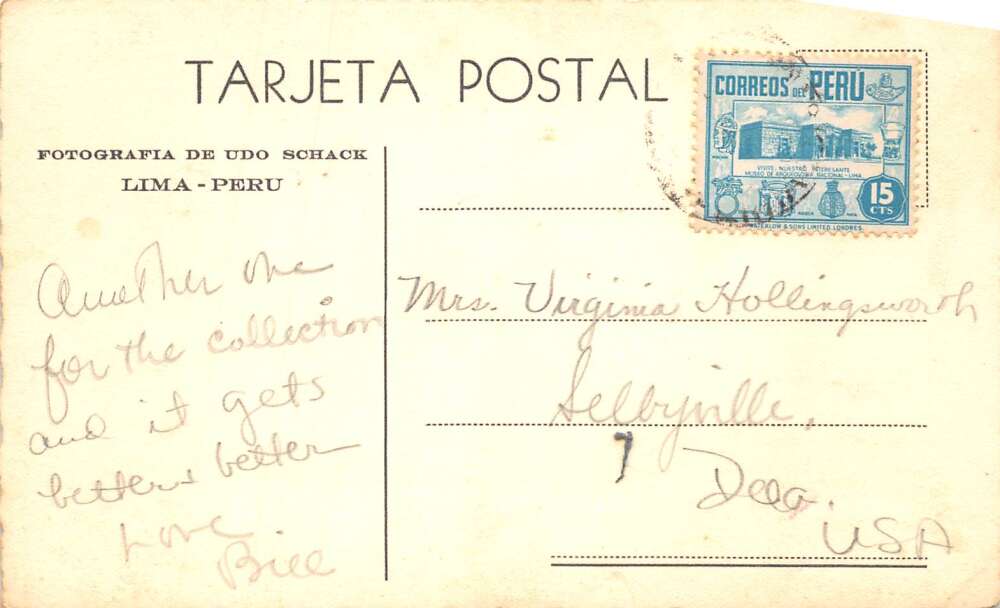 TARJETA POSTAL
FOTOGRAFIA DE UDO SCHACK
LIMA - PERU
CORREOS DEL PERÚ
VISITE NUESTRO INTERESANTE
MUSEO DE ARQUEOLOGIA NACIONAL - LIMA
15
CTS
WATERLOW & SONS LIMITED, LONDRES.
Another one
for the collection
and it gets
better & better
Love
Bill
Mrs. Virginia Hollingsworth
Selbyville,
7
Dela.
USA